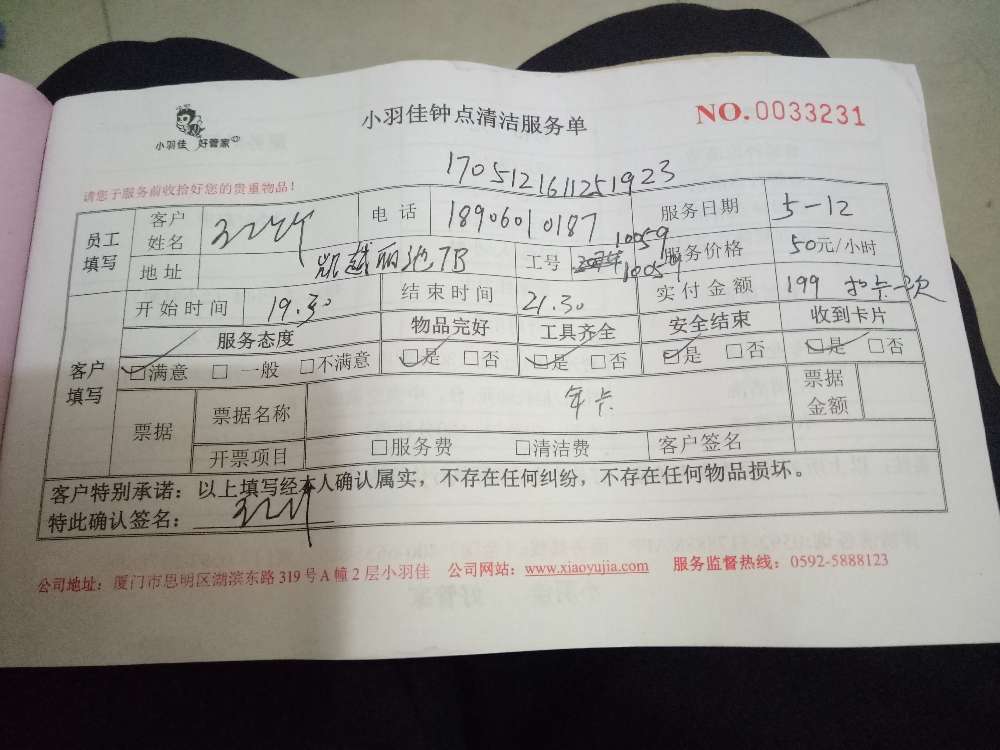 小羽佳 好管家
小羽佳钟点清洁服务单
NO.0033231
1705121611251923
请您于服务前收拾好您的贵重物品!
员工填写 客户姓名 电话 18906010187 服务日期 5-12
地址 凯越丽池7B 工号 10059 10059 服务价格 50元/小时
客户填写 开始时间 19.30 结束时间 21.30 实付金额 199 扣卡一次
服务态度 物品完好 工具齐全 安全结束 收到卡片
☑满意 □一般 □不满意 ☑是 □否 ☑是 □否 ☑是 □否 ☑是 □否
票据 票据名称 年卡 票据金额
开票项目 □服务费 □清洁费 客户签名
客户特别承诺:以上填写经本人确认属实,不存在任何纠纷,不存在任何物品损坏。
特此确认签名:
公司地址:厦门市思明区湖滨东路319号A幢2层小羽佳 公司网站:www.xiaoyujia.com 服务监督热线:0592-5888123